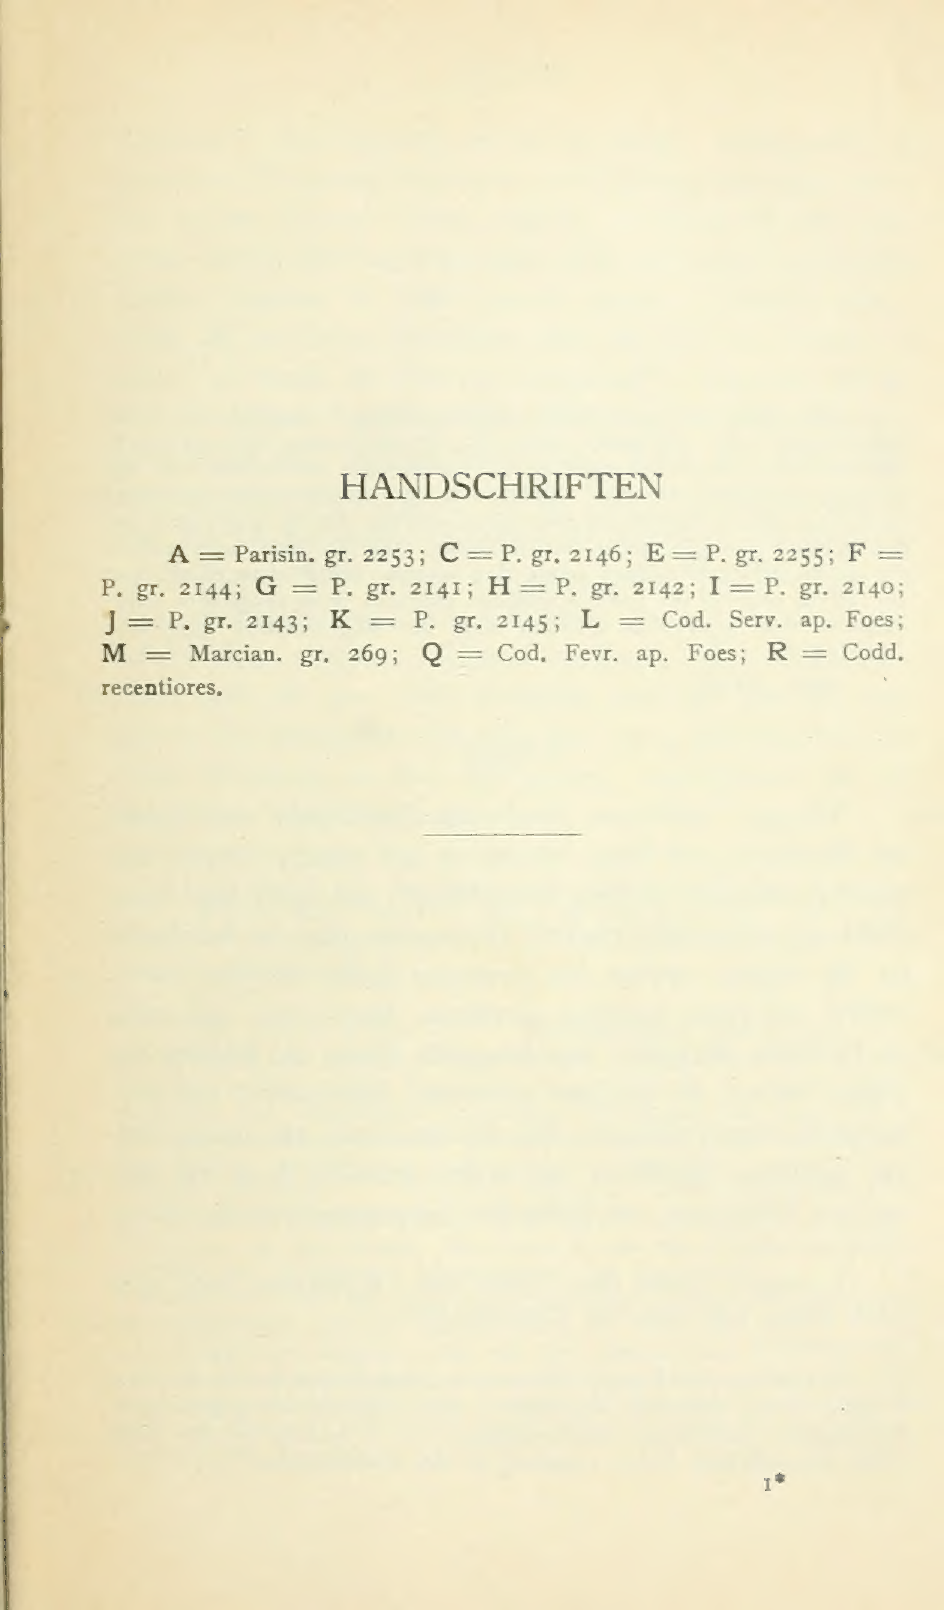 HANDSCHRIFTEN
A = Parisin. gr. 2253; C = P. gr. 2146; E = P. gr. 2255; F =
P. gr. 2144; G = P. gr. 2141; H = P. gr. 2142; I = P. gr. 2140;
J = P. gr. 2143; K = P. gr. 2145; L = Cod. Serv. ap. Foes;
M = Marcian. gr. 269; Q = Cod. Fevr. ap. Foes; R = Codd.
recentiores.
1*